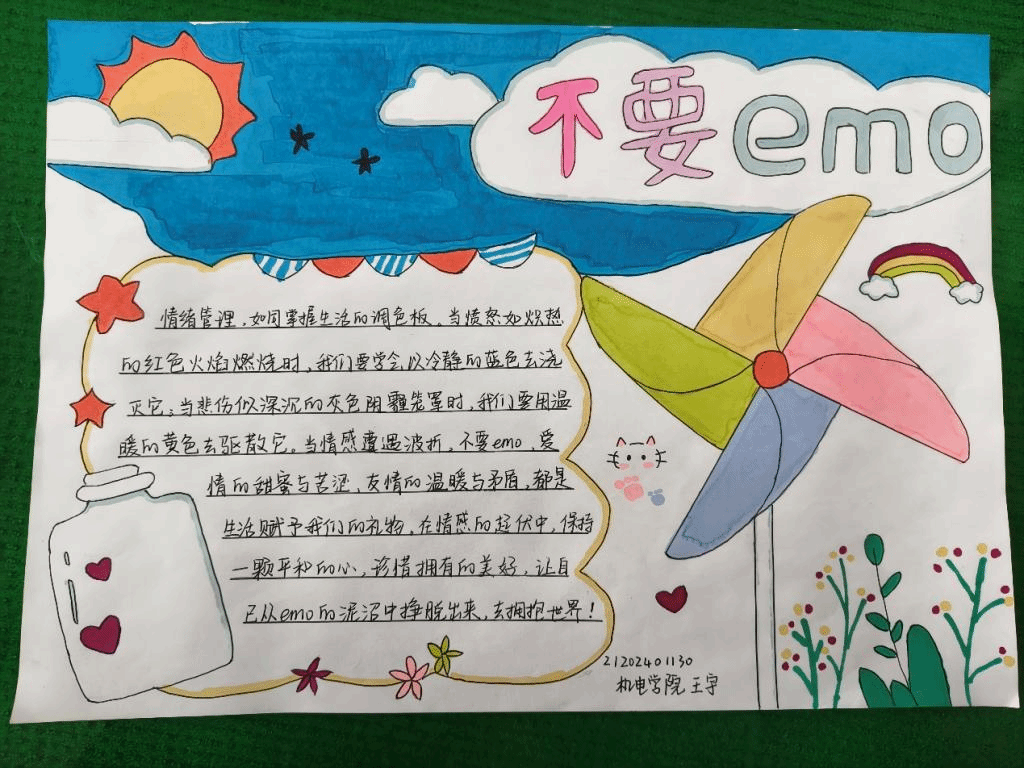 不要emo
情绪管理,如同掌握生活的调色板。当愤怒如炽热
的红色火焰燃烧时,我们要学会以冷静的蓝色去浇
灭它;当悲伤似深沉的灰色阴霾笼罩时,我们要用温
暖的黄色去驱散它。当情感遭遇波折,不要emo,爱
情的甜蜜与苦涩,友情的温暖与矛盾,都是
生活赋予我们的礼物。在情感的起伏中,保持
一颗平和的心,珍惜拥有的美好,让自
己从emo的泥沼中挣脱出来,去拥抱世界!
21202401130
机电学院 王宇